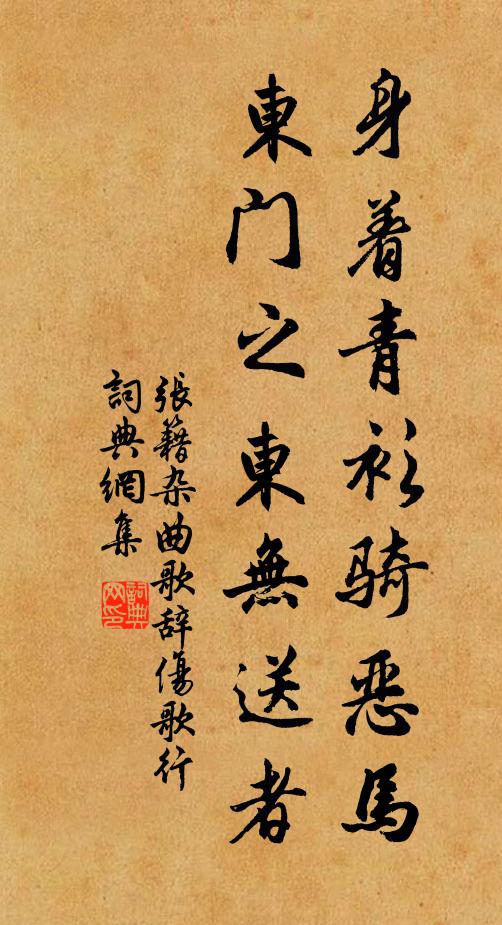 身着青衫骑恶馬
東门之東無送者
張籍杂曲歌辞傷歌行
詞典網集
詞典网印